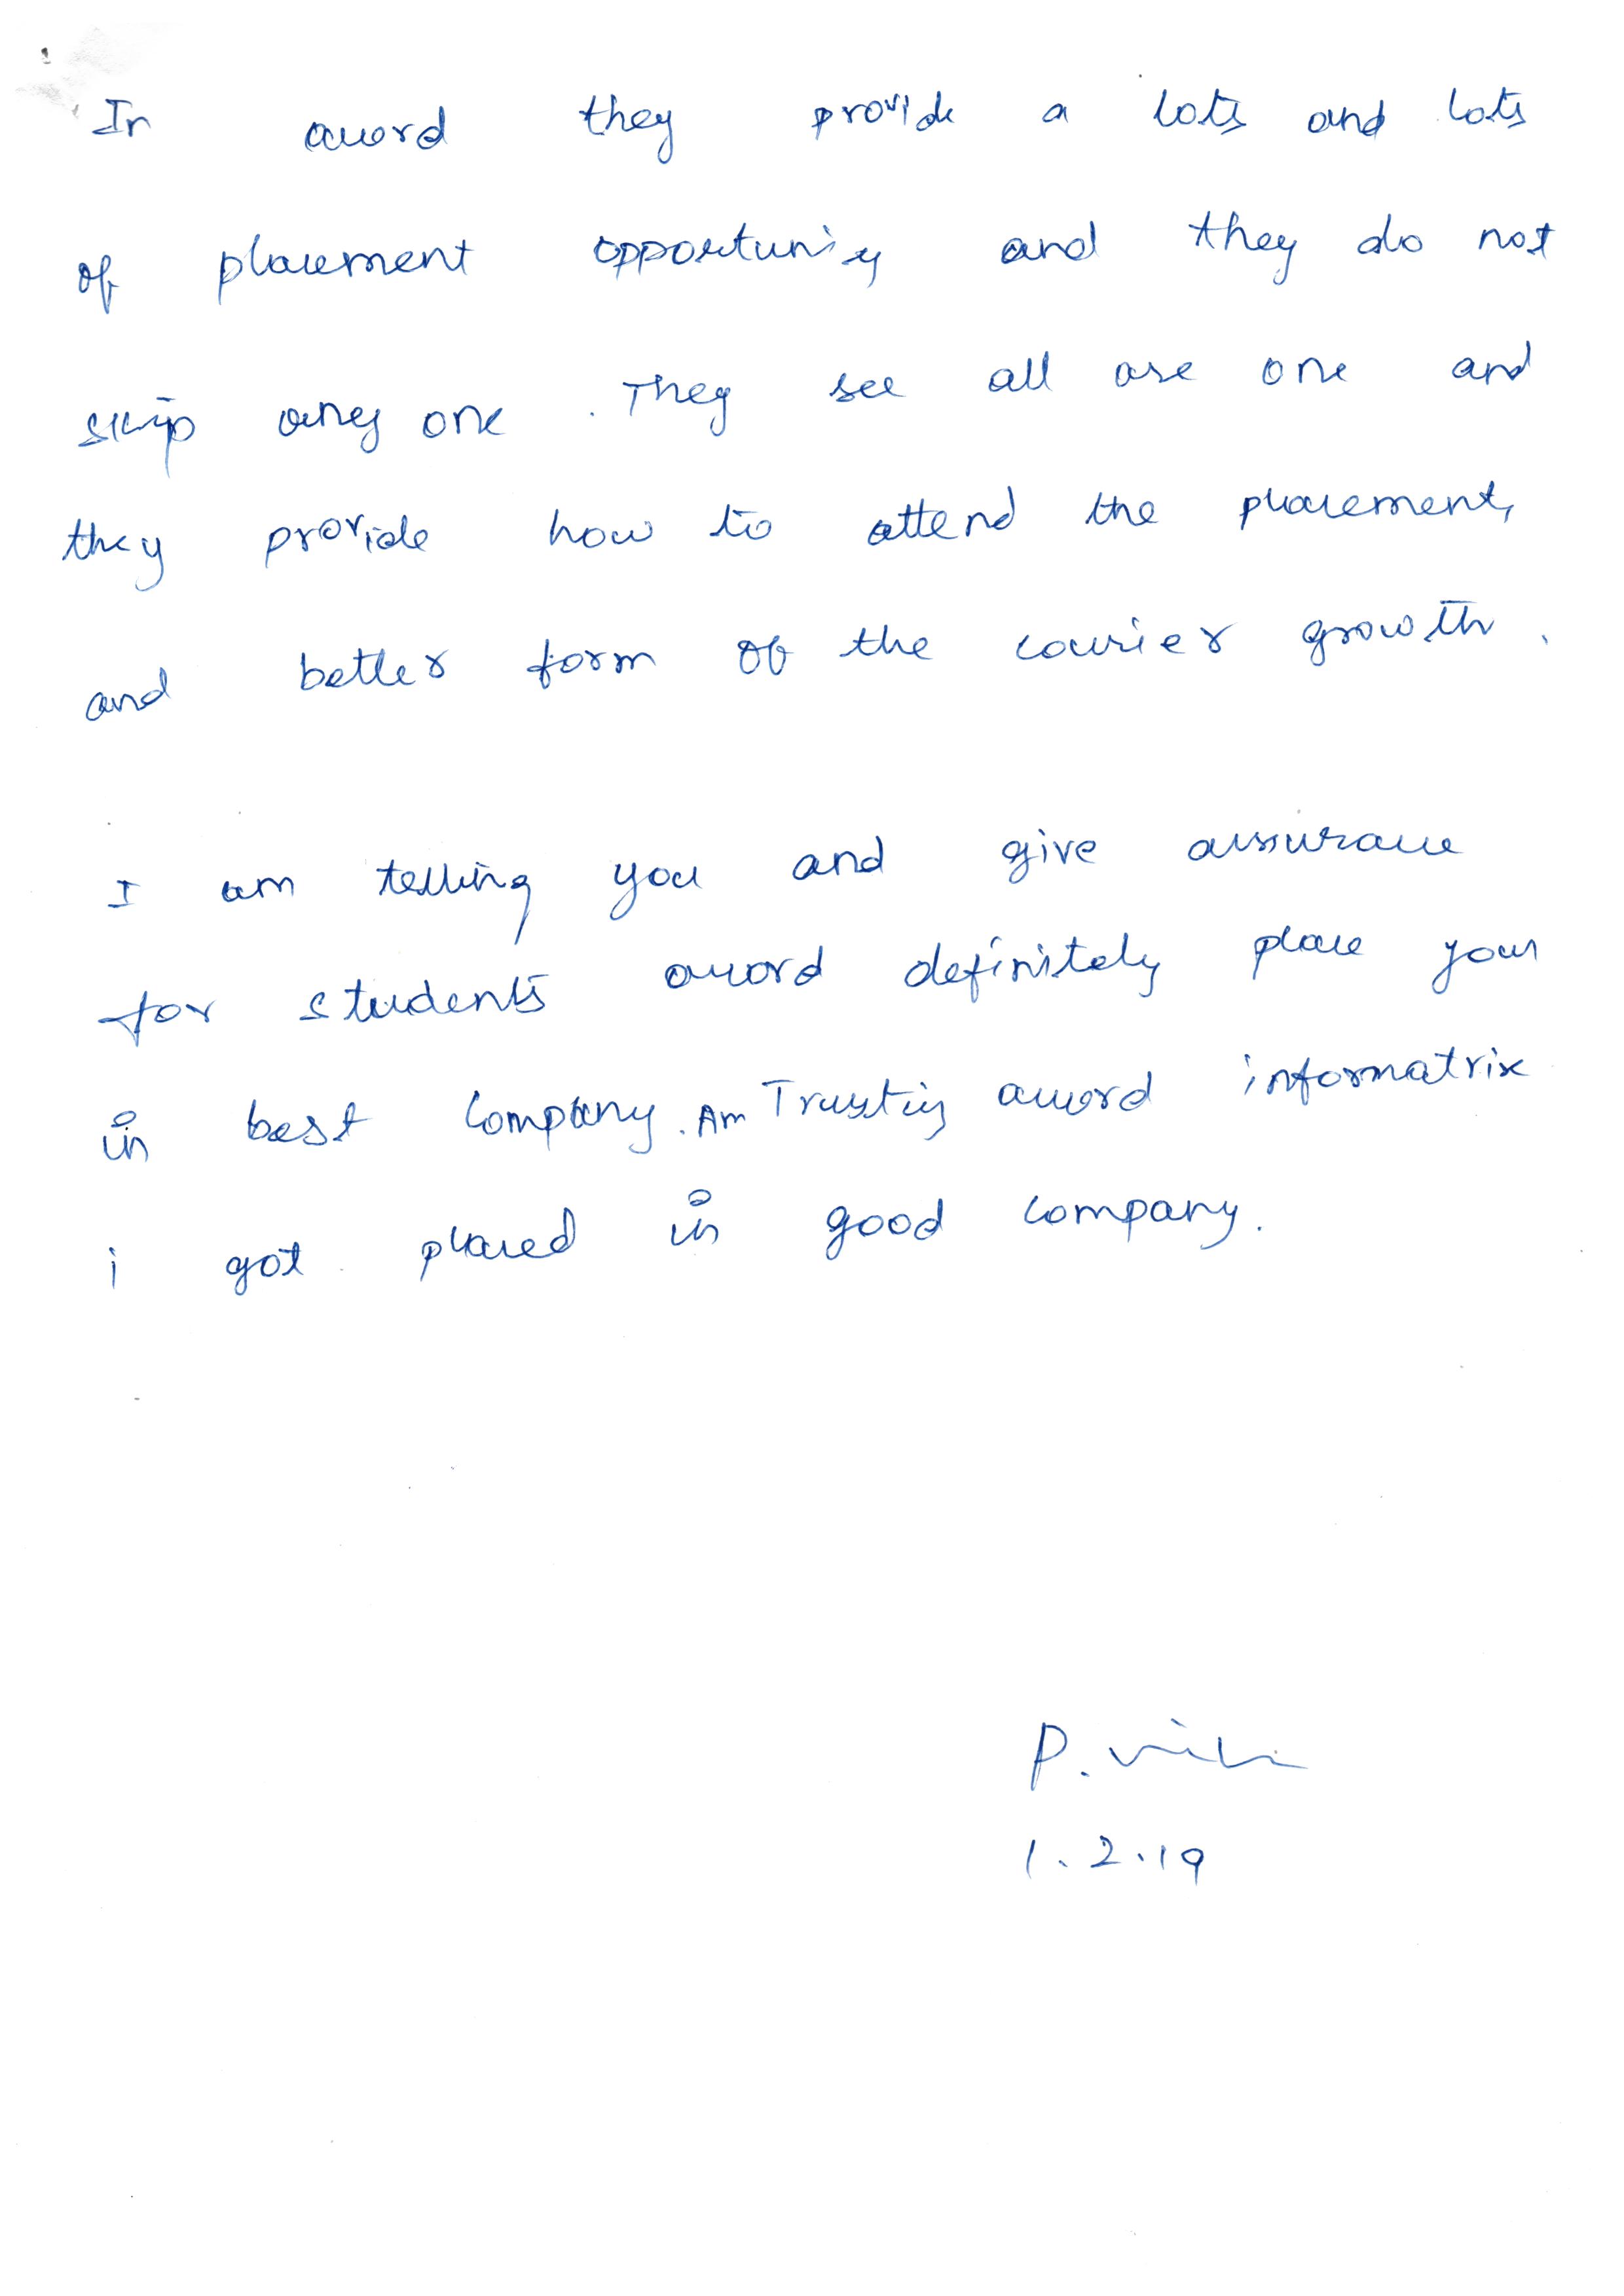 In accord they provide a lots and lots
of placement opportuniy and they do not
skip any one . They see all are one and
they provide how to attend the placement,
and better form of the courier growth .
I am telling you and give assurance
for students accord definitely place your
in best company. Am Trusting accord informatrix
i got placed in good company.
P.
1.2.19